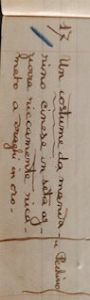 17 Un costume da manda-
rino cinese in seta az-
zurra riccamente rica-
mato a draghi in oro -